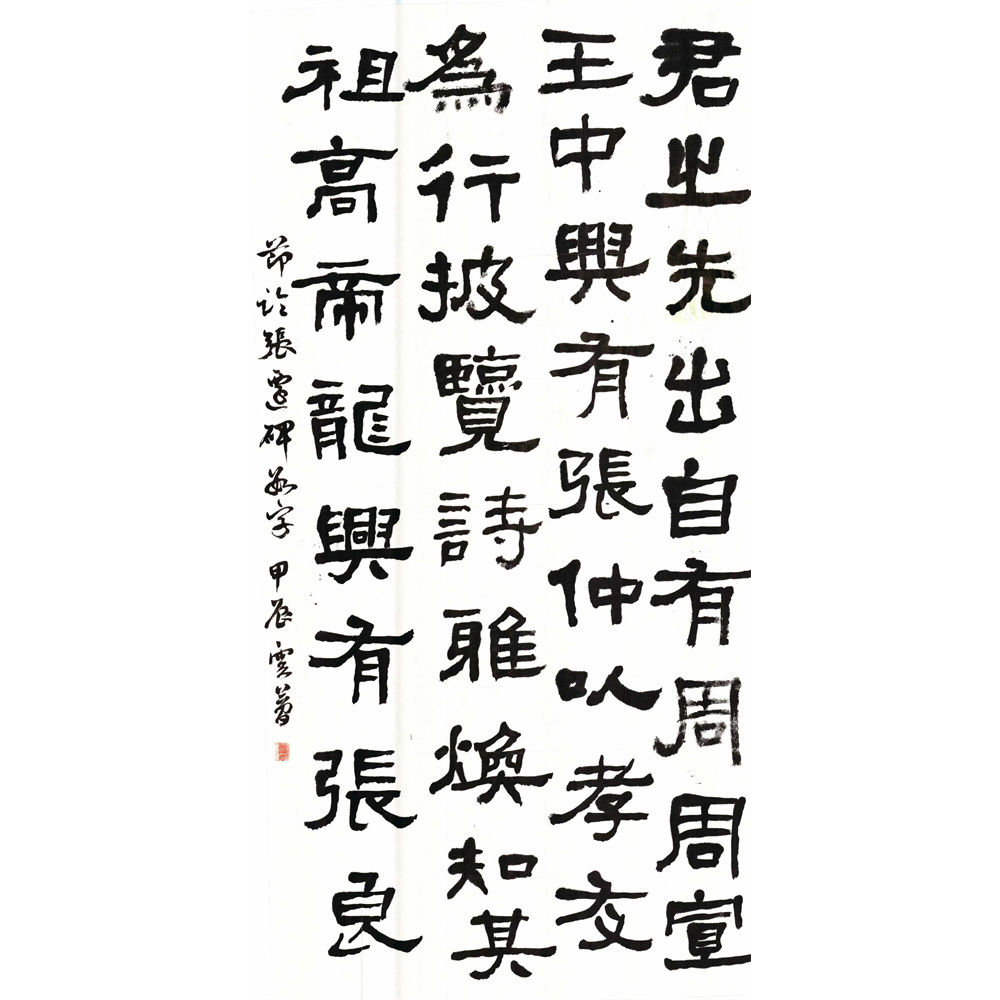 君之先出自有周周宣
王中興有張仲以孝友
為行披覽詩雅煥知其
祖高帝龍興有張良
節臨張遷碑數字 甲辰 雲